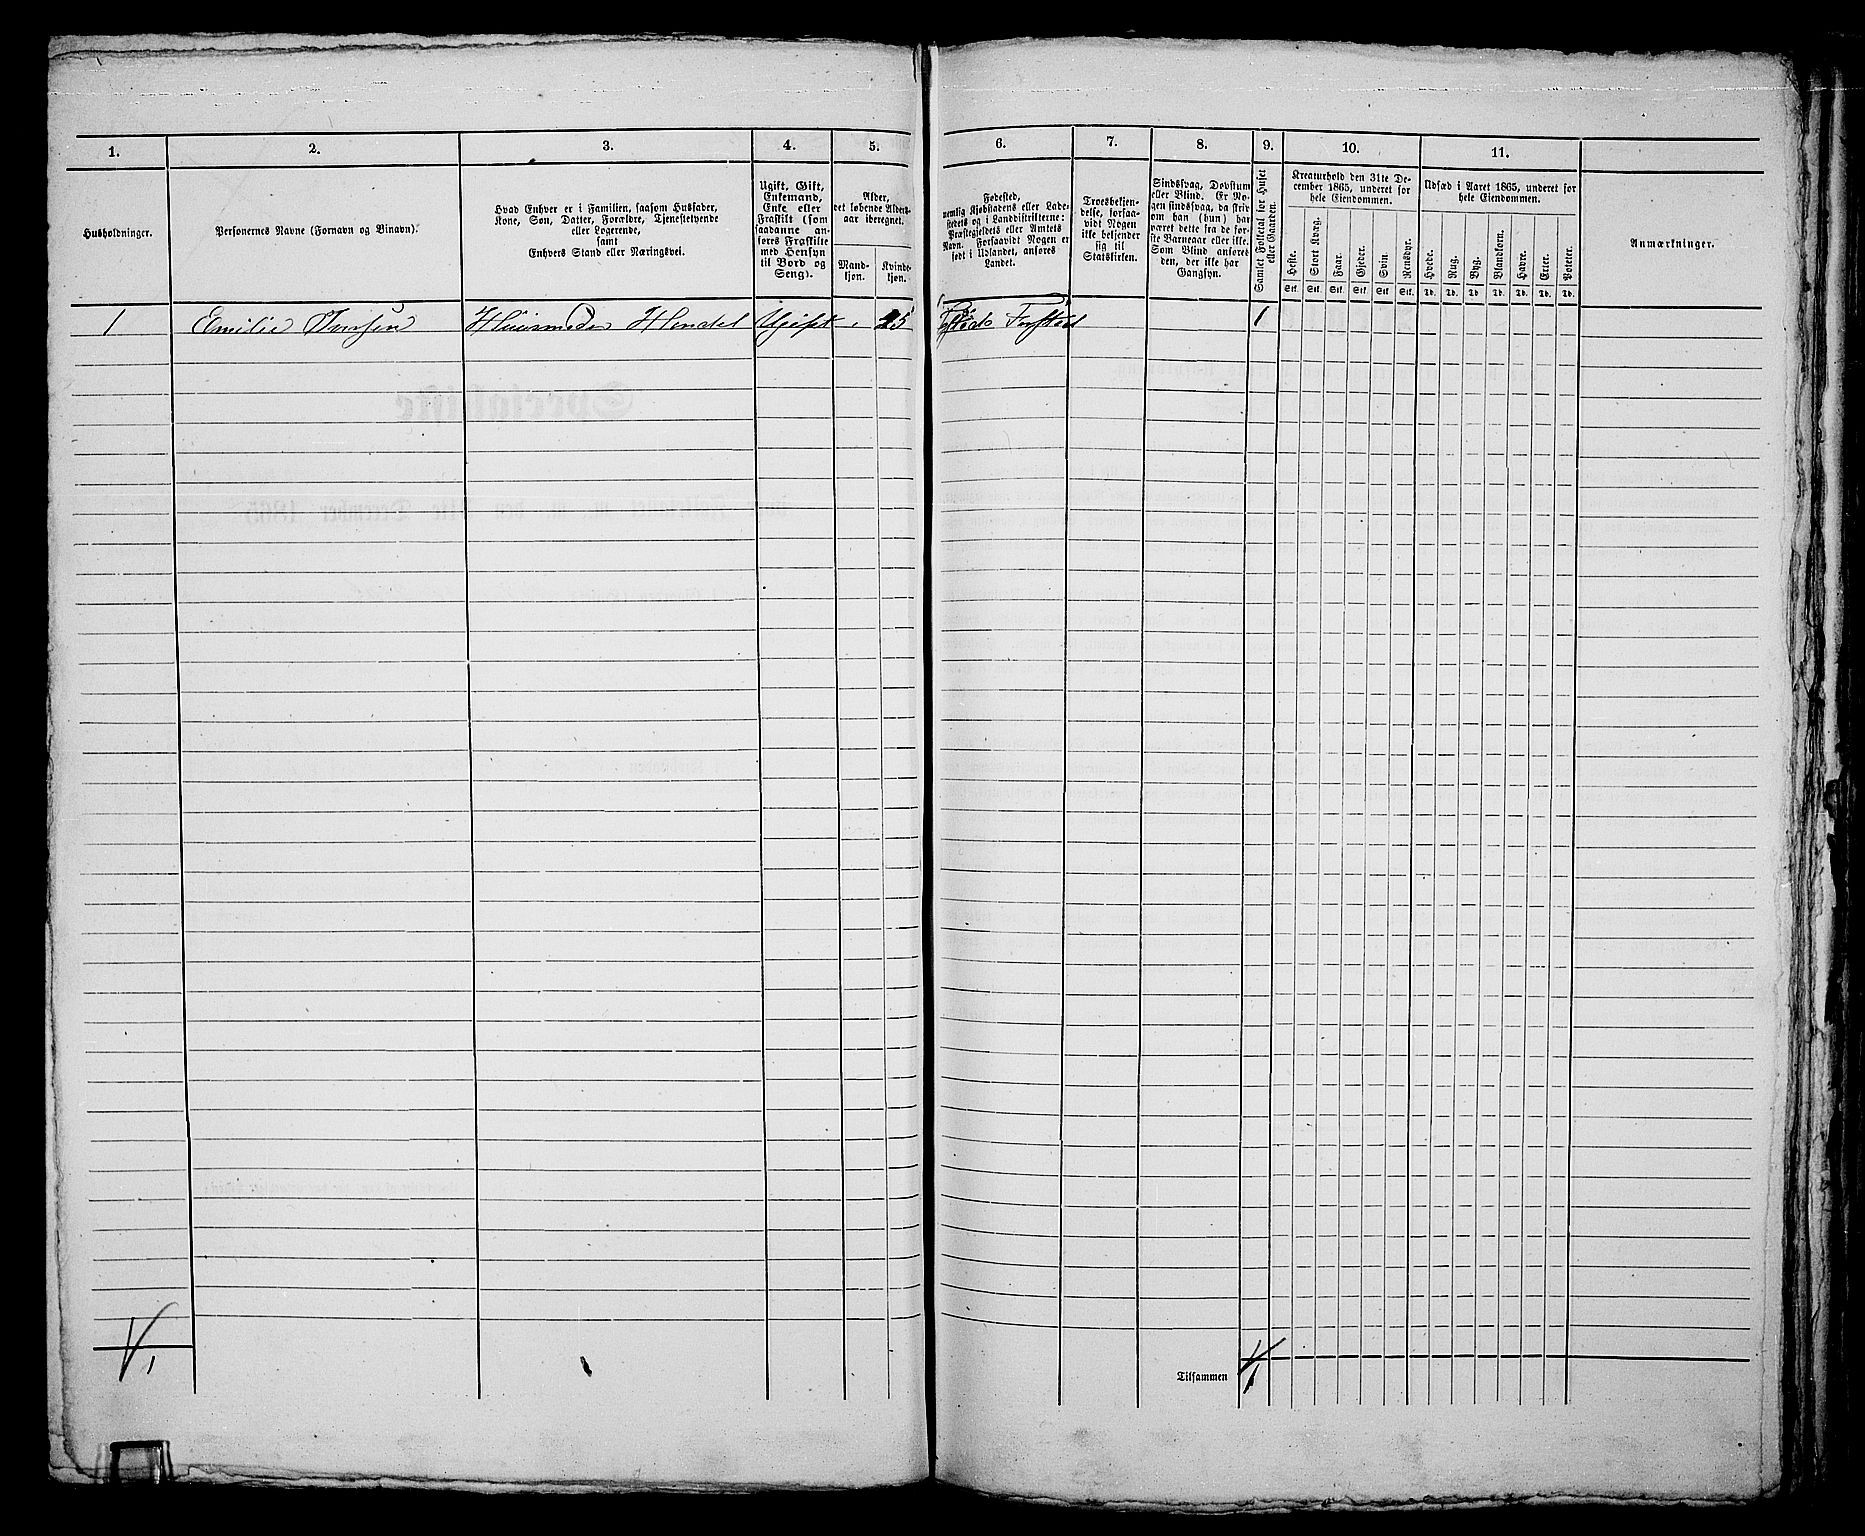 1.
2.
3.
4.
5.
6.
7.
8.
9.
10.
11.
Husholdninger.
Personernes Navne (Fornavn og Binavn).
Hvad Enhver er i Familien, saasom Husfader,
Kone, Søn, Datter, Forældre, Tjenestetyende
eller Logerende,
samt
Enhvers Stand eller Næringsvei.
Ugift, Gift,
Enkemand,
Enke eller
Fraskilt (som
saadanne an-
føres Fraskilte
med Hensyn
til Bord og
Seng).
Alder,
det løbende Alders-
aar iberegnet.
Mand-
kjøn.
Kvinde-
kjøn.
Fødested,
nemlig Kjøbstadens eller Lade-
stedets og i Landdistrikterne:
Præstegjeldets eller Amtets
Navn. Forsaavidt Nogen er
født i Udlandet, anføres
Landet.
Troesbekjen-
delse, forsaa-
vidt Nogen
ikke bekjender
sig til
Statskirken.
Sindssvag, Døvstum
eller Blind. Er No-
gen sindssvag, da skriv
om han (hun) har
været dette fra de før-
ste Barneaar eller ikke.
Som Blind anføres
den, der ikke har
Gangsyn.
Samlet Folketal for Huset
eller Gaarden.
Kreaturhold den 31te De-
cember 1865, underet for
hele Eiendommen.
Heste.
Stort Kvæg.
Faar.
Gjeder.
Svin.
Rensdyr.
Stk. Stk. Stk. Stk. Stk. Stk.
Udsæd i Aaret 1865, underet for
hele Eiendommen.
Hvede.
Rug.
Byg.
Blandkorn.
Havre.
Erter.
Poteter.
Td. Td. Td. Td. Td. Td. Td.
Anmærkninger.
1 Emilie Husmoder Handel Ugift 1
Tilsammen 1
1